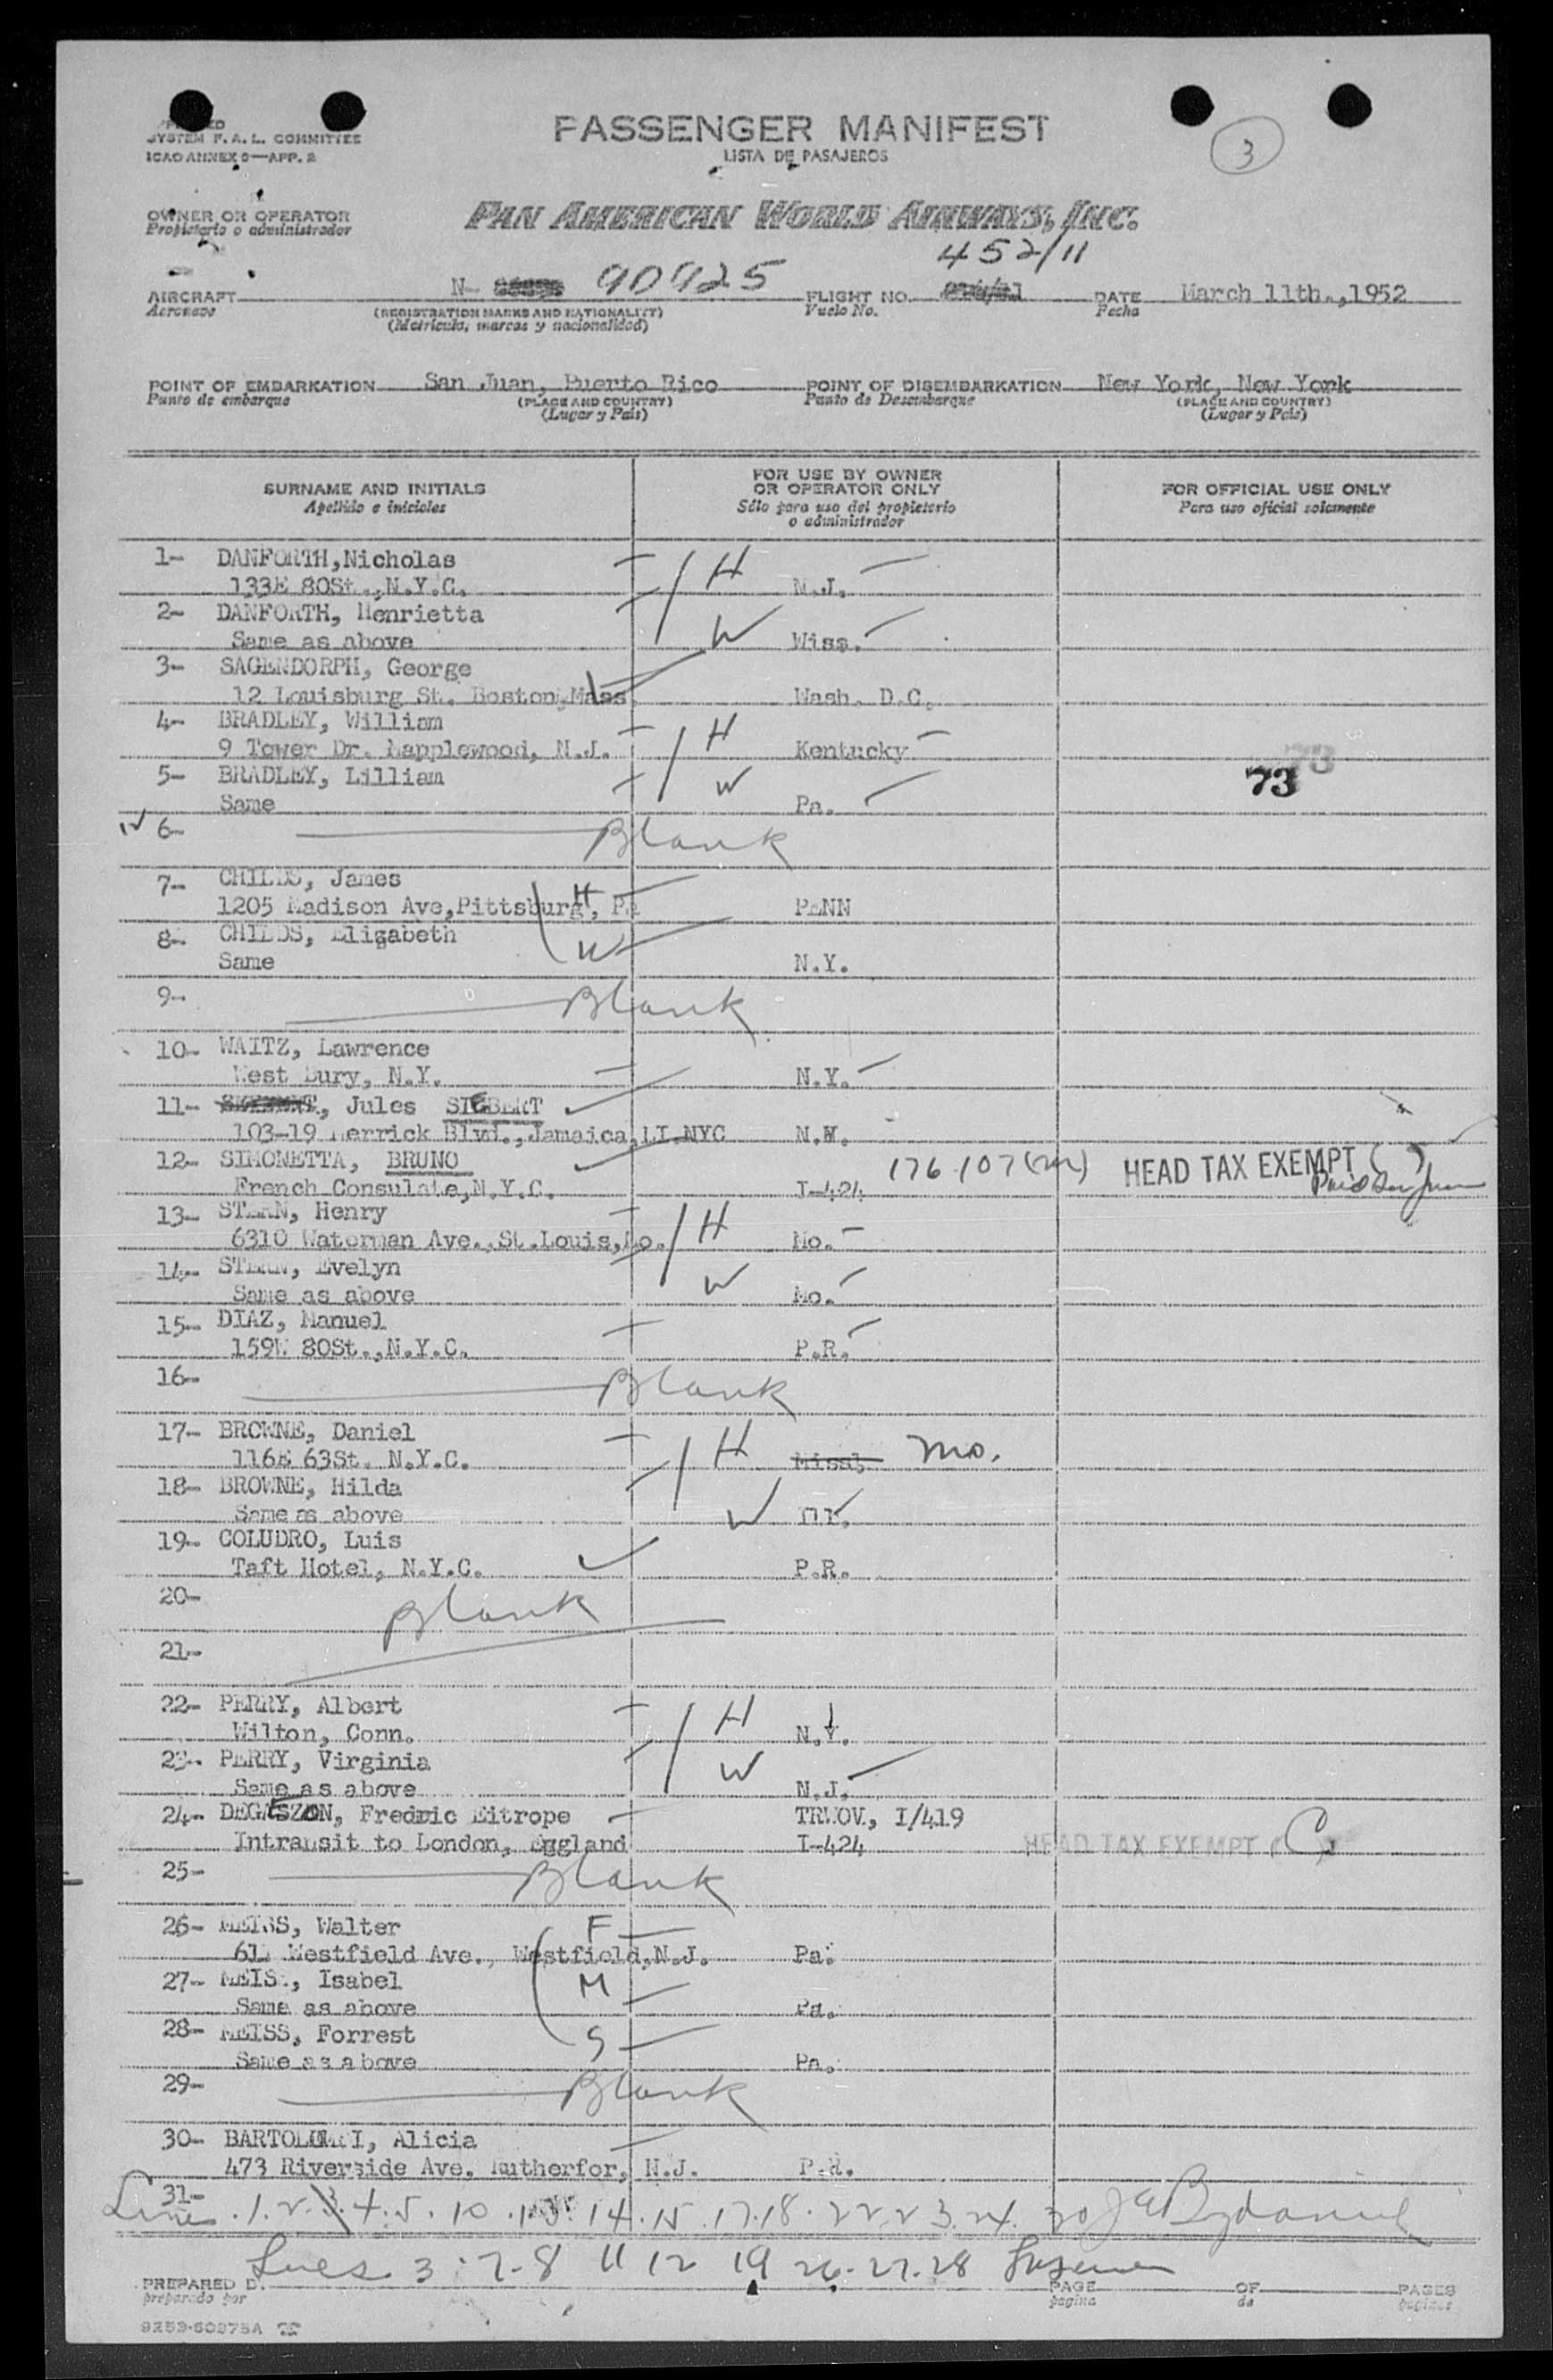 SYSTEM F. A. L. COMMITTEE
ICAO ANNEX 9—APP. 2
PASSENGER MANIFEST
LISTA DE PASAJEROS
3
OWNER OR OPERATOR
Propietario o administrador
PAN AMERICAN WORLD AIRWAYS, INC.
452/11
AIRCRAFT N- 90925 FLIGHT NO. DATE March 11th.,1952
Aeronave (REGISTRATION MARKS AND NATIONALITY) Vuelo No. Fecha
(Matricula, marcas y nacionalidad)
POINT OF EMBARKATION San Juan, Puerto Rico POINT OF DISEMBARKATION New York, New York
Punto de embarque (PLACE AND COUNTRY) Punto de Desembarque (PLACE AND COUNTRY)
(Lugar y Pais) (Lugar y Pais)
SURNAME AND INITIALS FOR USE BY OWNER OR OPERATOR ONLY FOR OFFICIAL USE ONLY
Apellido e iniciales Sólo para uso del propietario o administrador Para uso oficial solamente
1- DANFORTH,Nicholas H
133E 80St.,N.Y.C. N.J.
2- DANFORTH, Henrietta W
Same as above Miss.
3- SAGENDORPH, George
12 Louisburg St. Boston,Mass. Wash. D.C.
4- BRADLEY, William H
9 Tower Dr. Mapplewood, N.J. Kentucky
5- BRADLEY, Lilliam W 73
Same Pa.
6- Blank
7- CHILDS, James H
1205 Madison Ave,Pittsburg, Pa PENN
8- CHILDS, Elizabeth W
Same N.Y.
9- Blank
10- WAITZ, Lawrence
West Bury, N.Y. N.Y.
11- , Jules SIEBERT
103-19 Merrick Blvd.,Jamaica,LI.NYC
12- SIMONETTA, BRUNO 176-107 HEAD TAX EXEMPT ( )
French Consulate,N.Y.C. I-424
13- STERN, Henry H
6310 Waterman Ave.,St.Louis,Mo. Mo.
14- STERN, Evelyn W
Same as above Mo.
15- DIAZ, Manuel
159W 80St.,N.Y.C. P.R.
16- Blank
17- BROWNE, Daniel H
116E 63St. N.Y.C. Mo.
18- BROWNE, Hilda W
Same as above
19- COLUDRO, Luis
Taft Hotel, N.Y.C. P.R.
20- Blank
21-
22- PERRY, Albert H
Wilton, Conn. N.Y.
23- PERRY, Virginia W
Same as above N.J.
24- Fredric Eitrope I/419
Intransit to London, England I-424 HEAD TAX EXEMPT (C)
25- Blank
26- MEISS, Walter F
Westfield Ave., Westfield,N.J. Pa.
27- MEISS, Isabel M
Same as above Pa.
28- MEISS, Forrest S
Same as above Pa.
29- Blank
30- BARTOLOMEI, Alicia
473 Riverside Ave. Rutherfor, N.J. P.R.
31-
Lines 1. 2. 3. 4. 5. 10 13 14. 15. 17. 18. 22. 23. 24. 30
Lines 3. 7-8 11 12 19 26-27-28
PREPARED BY PAGE OF PAGES
preparado por pagina de paginas